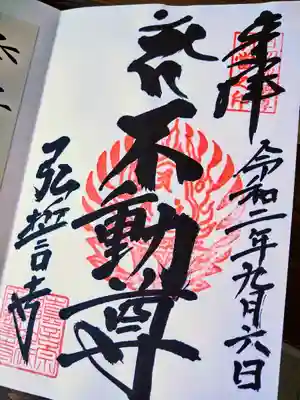 奉拝
令和二年九月六日
不動尊
弘誓寺